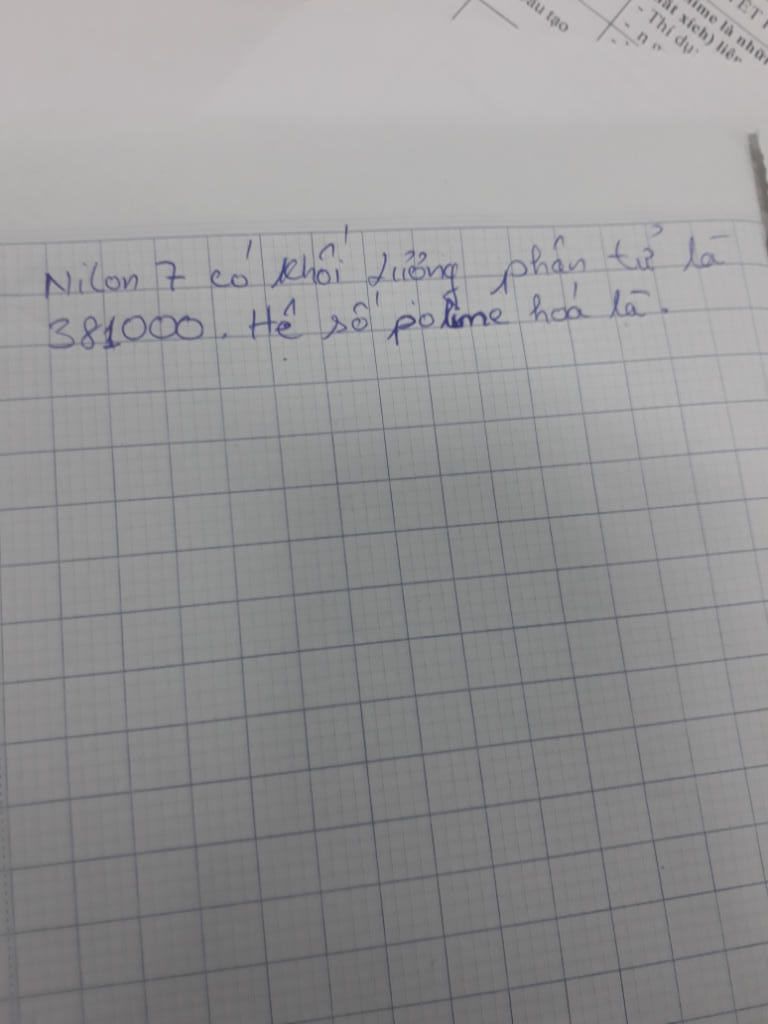 ấu tạo
ết xích) liên
- Thí dụ:
Nilon 7 có khối lượng phân tử là
381000. Hệ số polime hoá là.